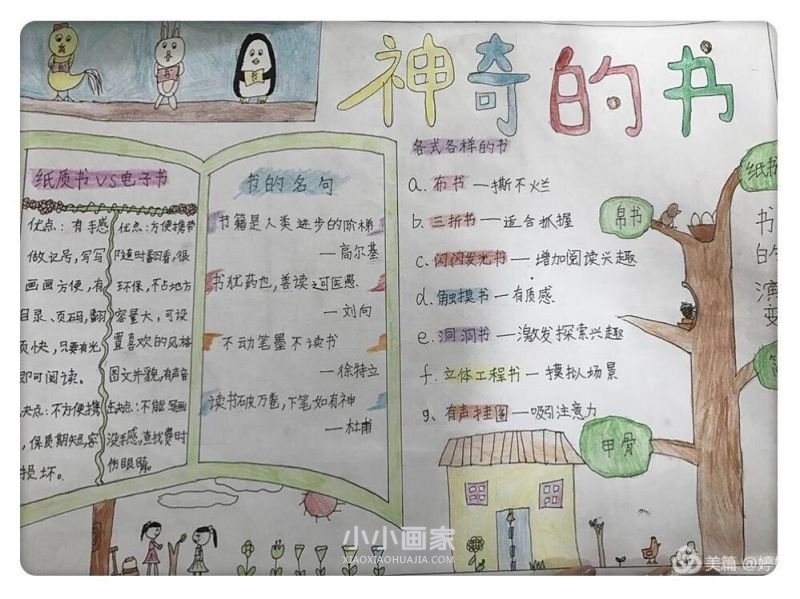 神奇的书
纸质书VS电子书
优点：有手感
做记号，写写
画画方便，有
目录、页码，翻
页快，只要有光
即可阅读。
缺点：不方便携
保质期短，容
损坏。
优点：方便携带
随时翻看，很
环保，不占地方
容量大，可设
置喜欢的风格
图文并貌，有声音
缺点：不能写画
没手感，查找费时
伤眼睛。
书的名句
书籍是人类进步的阶梯
—高尔基
书犹药也，善读之可医愚
—刘向
不动笔墨不读书
—徐特立
读书破万卷，下笔如有神
—杜甫
各式各样的书
a. 布书—撕不烂
b. 三折书—适合抓握
c. 闪闪发光书—增加阅读兴趣
d. 触摸书—有质感
e. 洞洞书—激发探索兴趣
f. 立体工程书—模拟场景
g. 有声挂图—吸引注意力
纸书
帛书
甲骨
书的演变
小小画家
XIAOXIAOHUAJIA.COM
美篇 @婷婷